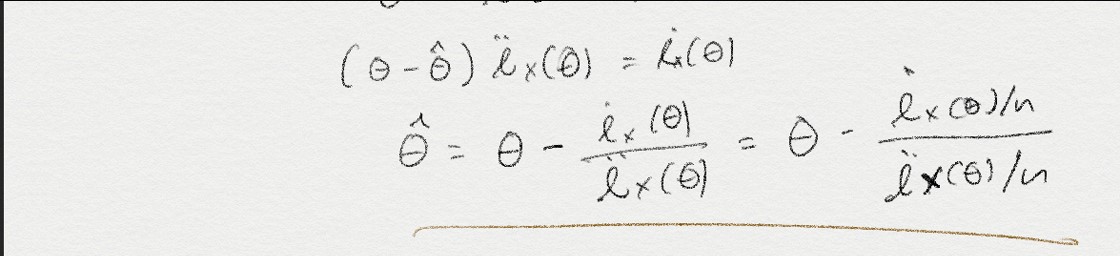 (θ - θ̂) ℓ̈ₓ(θ) = ℓ̇ₓ(θ)
θ̂ = θ - ℓ̇ₓ(θ) / ℓ̈ₓ(θ) = θ - (ℓ̇ₓ(θ)/n) / (ℓ̈ₓ(θ)/n)